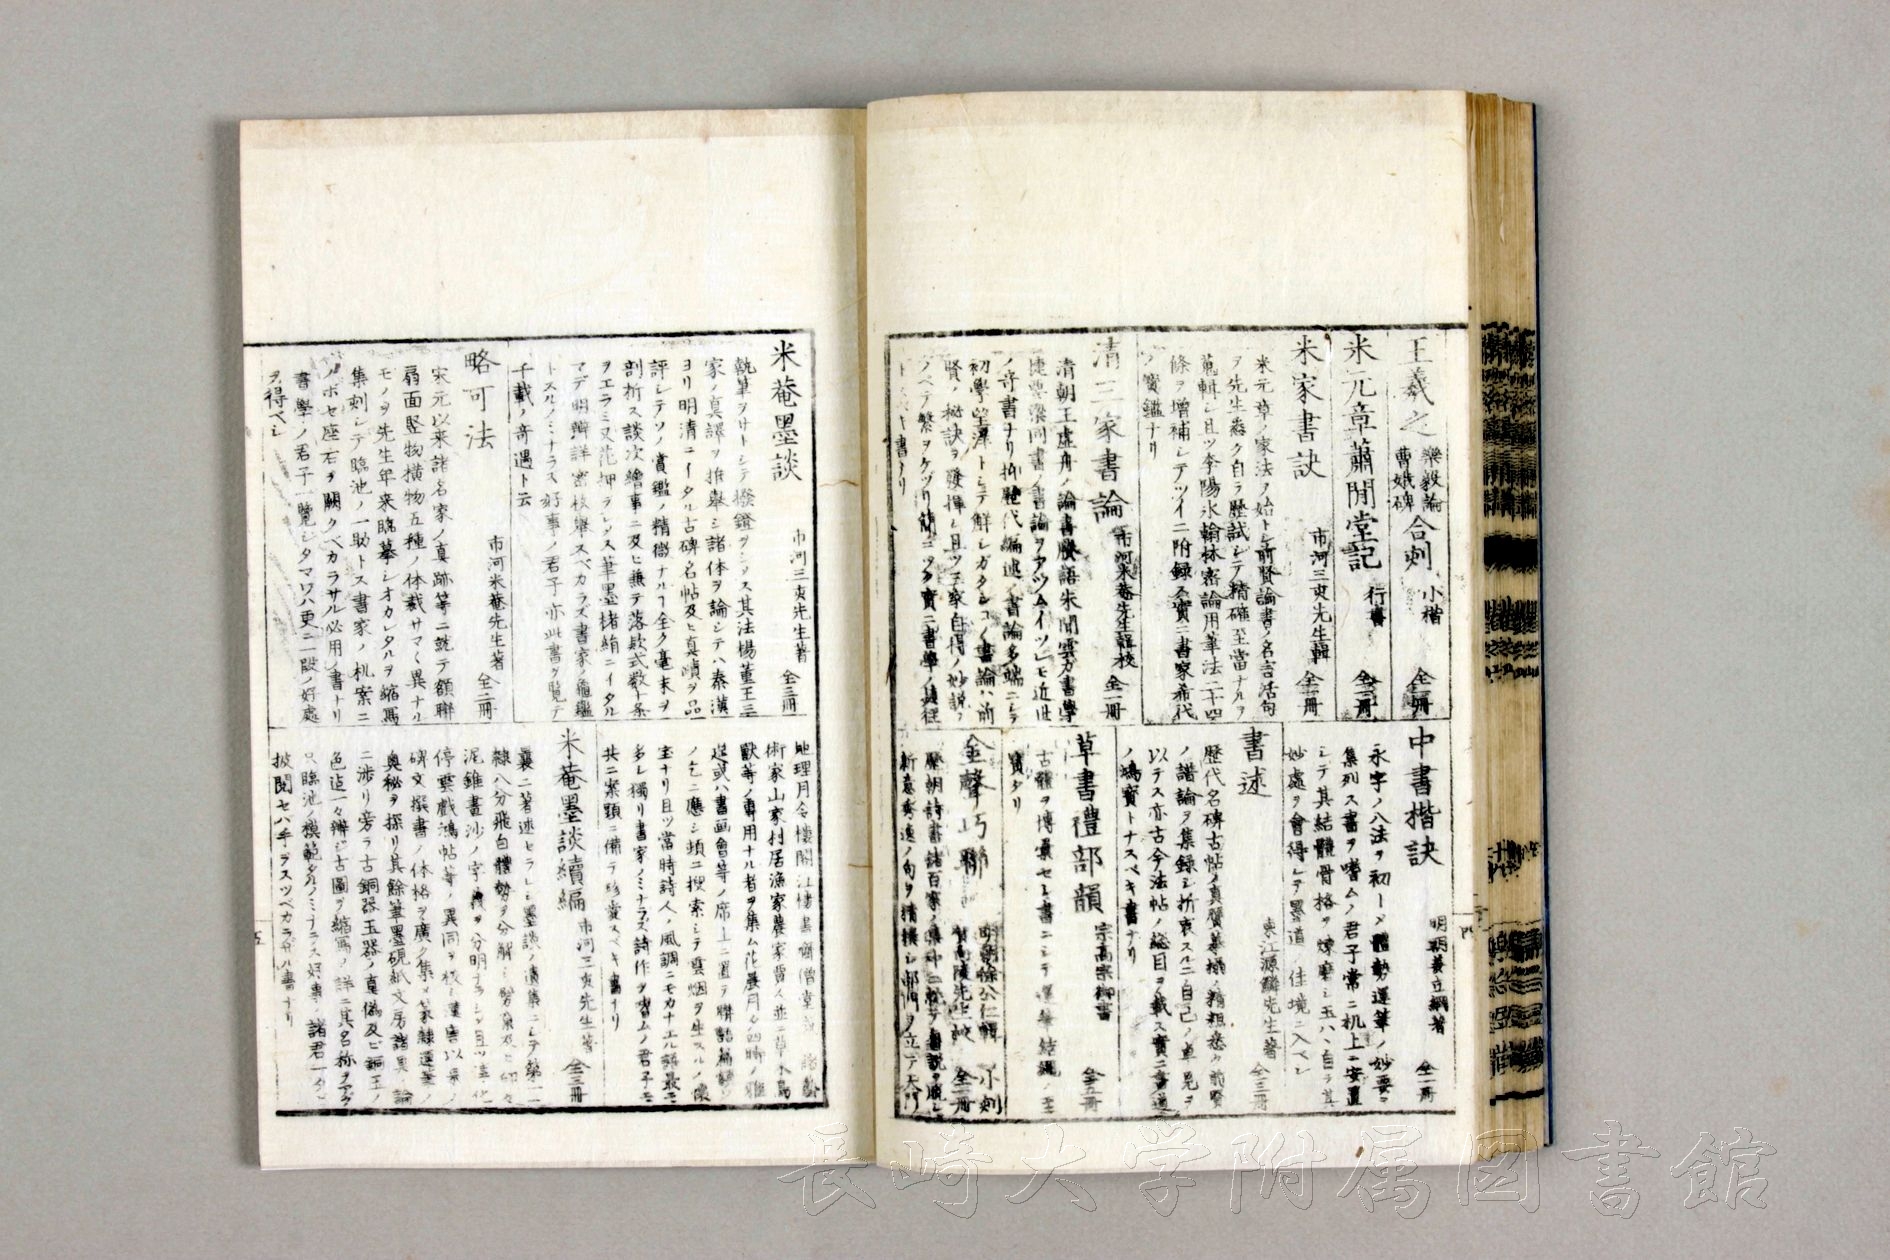 王羲之 樂毅論 曹娥碑 合刻 小楷 全一冊
米元章蕭閒堂記 行書 全一冊
米家書訣 市河三亥先生輯 全一冊
米元章ノ家法ヲ始トシ前賢論書ノ名言活句
ヲ先生悉ク自ラ歴試シテ精確至當ナルヲ
蒐輯シ且ツ李陽氷翰林密論用筆法二十四
條ヲ増補シテツイニ附録ス實ニ書家希代
ノ寳鑑ナリ
清三家書論 市河米菴先生輯校 全一冊
清朝王虚舟ノ論書賸語朱閒雲カ書學
捷要梁同書ノ書論ヲアツムイツレモ近世
ノ奇書ナリ抑歴代編述ノ書論多端ニシテ
初學望洋トシテ解シガタシコノ書論ハ前
賢ノ秘訣ヲ發揮シ且ツ三家自得ノ妙説ヲ
ノベテ繁ヲケヅリ簡ニツク實ニ書學ノ
中書楷訣 明朝姜立綱著 全一冊
永字ノ八法ヲ初一メ體勢運筆ノ妙要ヲ
集列ス書ヲ嗜ムノ君子常ニ机上ニ安置
シテ其結體骨格ヲ煉磨シ玉ハヽ自ラ其
妙處ヲ會得シテ墨道ノ佳境ニ入ベシ
書述 東江源鱗先生著 全三冊
歴代名碑古帖ノ真贋摹搨ノ精粗悉ク前賢
ノ諸論ヲ集録シ折衷スルニ自己ノ卓見ヲ
以テス亦古今法帖ノ總目ヲ載ス實ニ書道
ノ鴻寳トナスベキ書ナリ
草書禮部韻 宗高宗御書 全五冊
古體ヲ博彙セシ書ニシテ運筆結構ノ至
寳タリ
金聲巧聯 明朝徐公仁輯 小刻 全二冊
米菴墨談 市河三亥先生著 全三冊
執筆ヲサトシテ撥鐙ヲシンス其法楊董王三
家ノ真譯ヲ推舉シ諸体ヲ論シテハ秦漢
ヨリ明清ニイタル古碑名帖及ヒ真蹟ヲ品
評シテソノ賞鑑ノ精微ナルヿ全ク毫末ヲ
剖折ス談次繪事ニ及ヒ兼テ落款式数十条
ヲエラミ又花押ヲシルス筆墨楮絹ニイタル
マデ明辨詳密枚舉スベカラズ書家ノ龜鑑
トスルノミナラス好事ノ君子亦此書ヲ覽テ
千載ノ奇遇ト云
略可法 市河米菴先生著 全二冊
宋元以来諸名家ノ真跡等ニ就テ額聯
扇面竪物横物五種ノ体裁サマ〱異ナル
モノヲ先生年来臨摹シオカレタルヲ縮寫
集刻シテ臨池ノ一助トス書家ノ机案ニ
ノボセ座右ヲ闕クベカラサル必用ノ書ナリ
書學ノ君子一覽シタマワハ更ニ一段ノ好處
ヲ得ベシ
地理月令樓閣江樓書齋僧堂
術家山家村居漁家農家賀人並ニ草木鳥
獸等ノ専用ナル者ヲ集ム花晨月夕四時ノ雅
ノ乞ニ應シ頃ニ捜索シテ雲烟ヲ生スルノ懐
宝ナリ且ツ當時詩人ノ風調ニモカナエル語最モ
多シ獨リ書家ノミナラズ詩作ヲ嗜ムノ君子モ
共ニ案頭ニ備テ珍賞スベキ書ナリ
米菴墨談續編 市河三亥先生著 全三冊
襄ニ著述セラレシ墨談ノ遺集ニシテ篆
隷八分飛白體勢ヲ分解シ
泥錐畫沙ノ字義ヲ分明ナラシ且ツ淳化
停雲戲鴻帖等ノ異同ヲ校シ
碑文撰書ノ体格ヲ廣ク集メ篆隷運筆ノ
奥秘ヲ探リ其餘筆墨硯紙文房諸具ノ論
ニ渉リ旁ラ古銅器玉器ノ真偽及ビ銅玉ノ
色迄一々辨シ古圖ヲ縮寫ノ詳ニ其名称ヲアグ
只臨池ノ模範タルノミナラス好事ノ諸君一タヒ
披閲セハ手ヲスツベカラサル書ナリ
五
長崎大学附属図書館